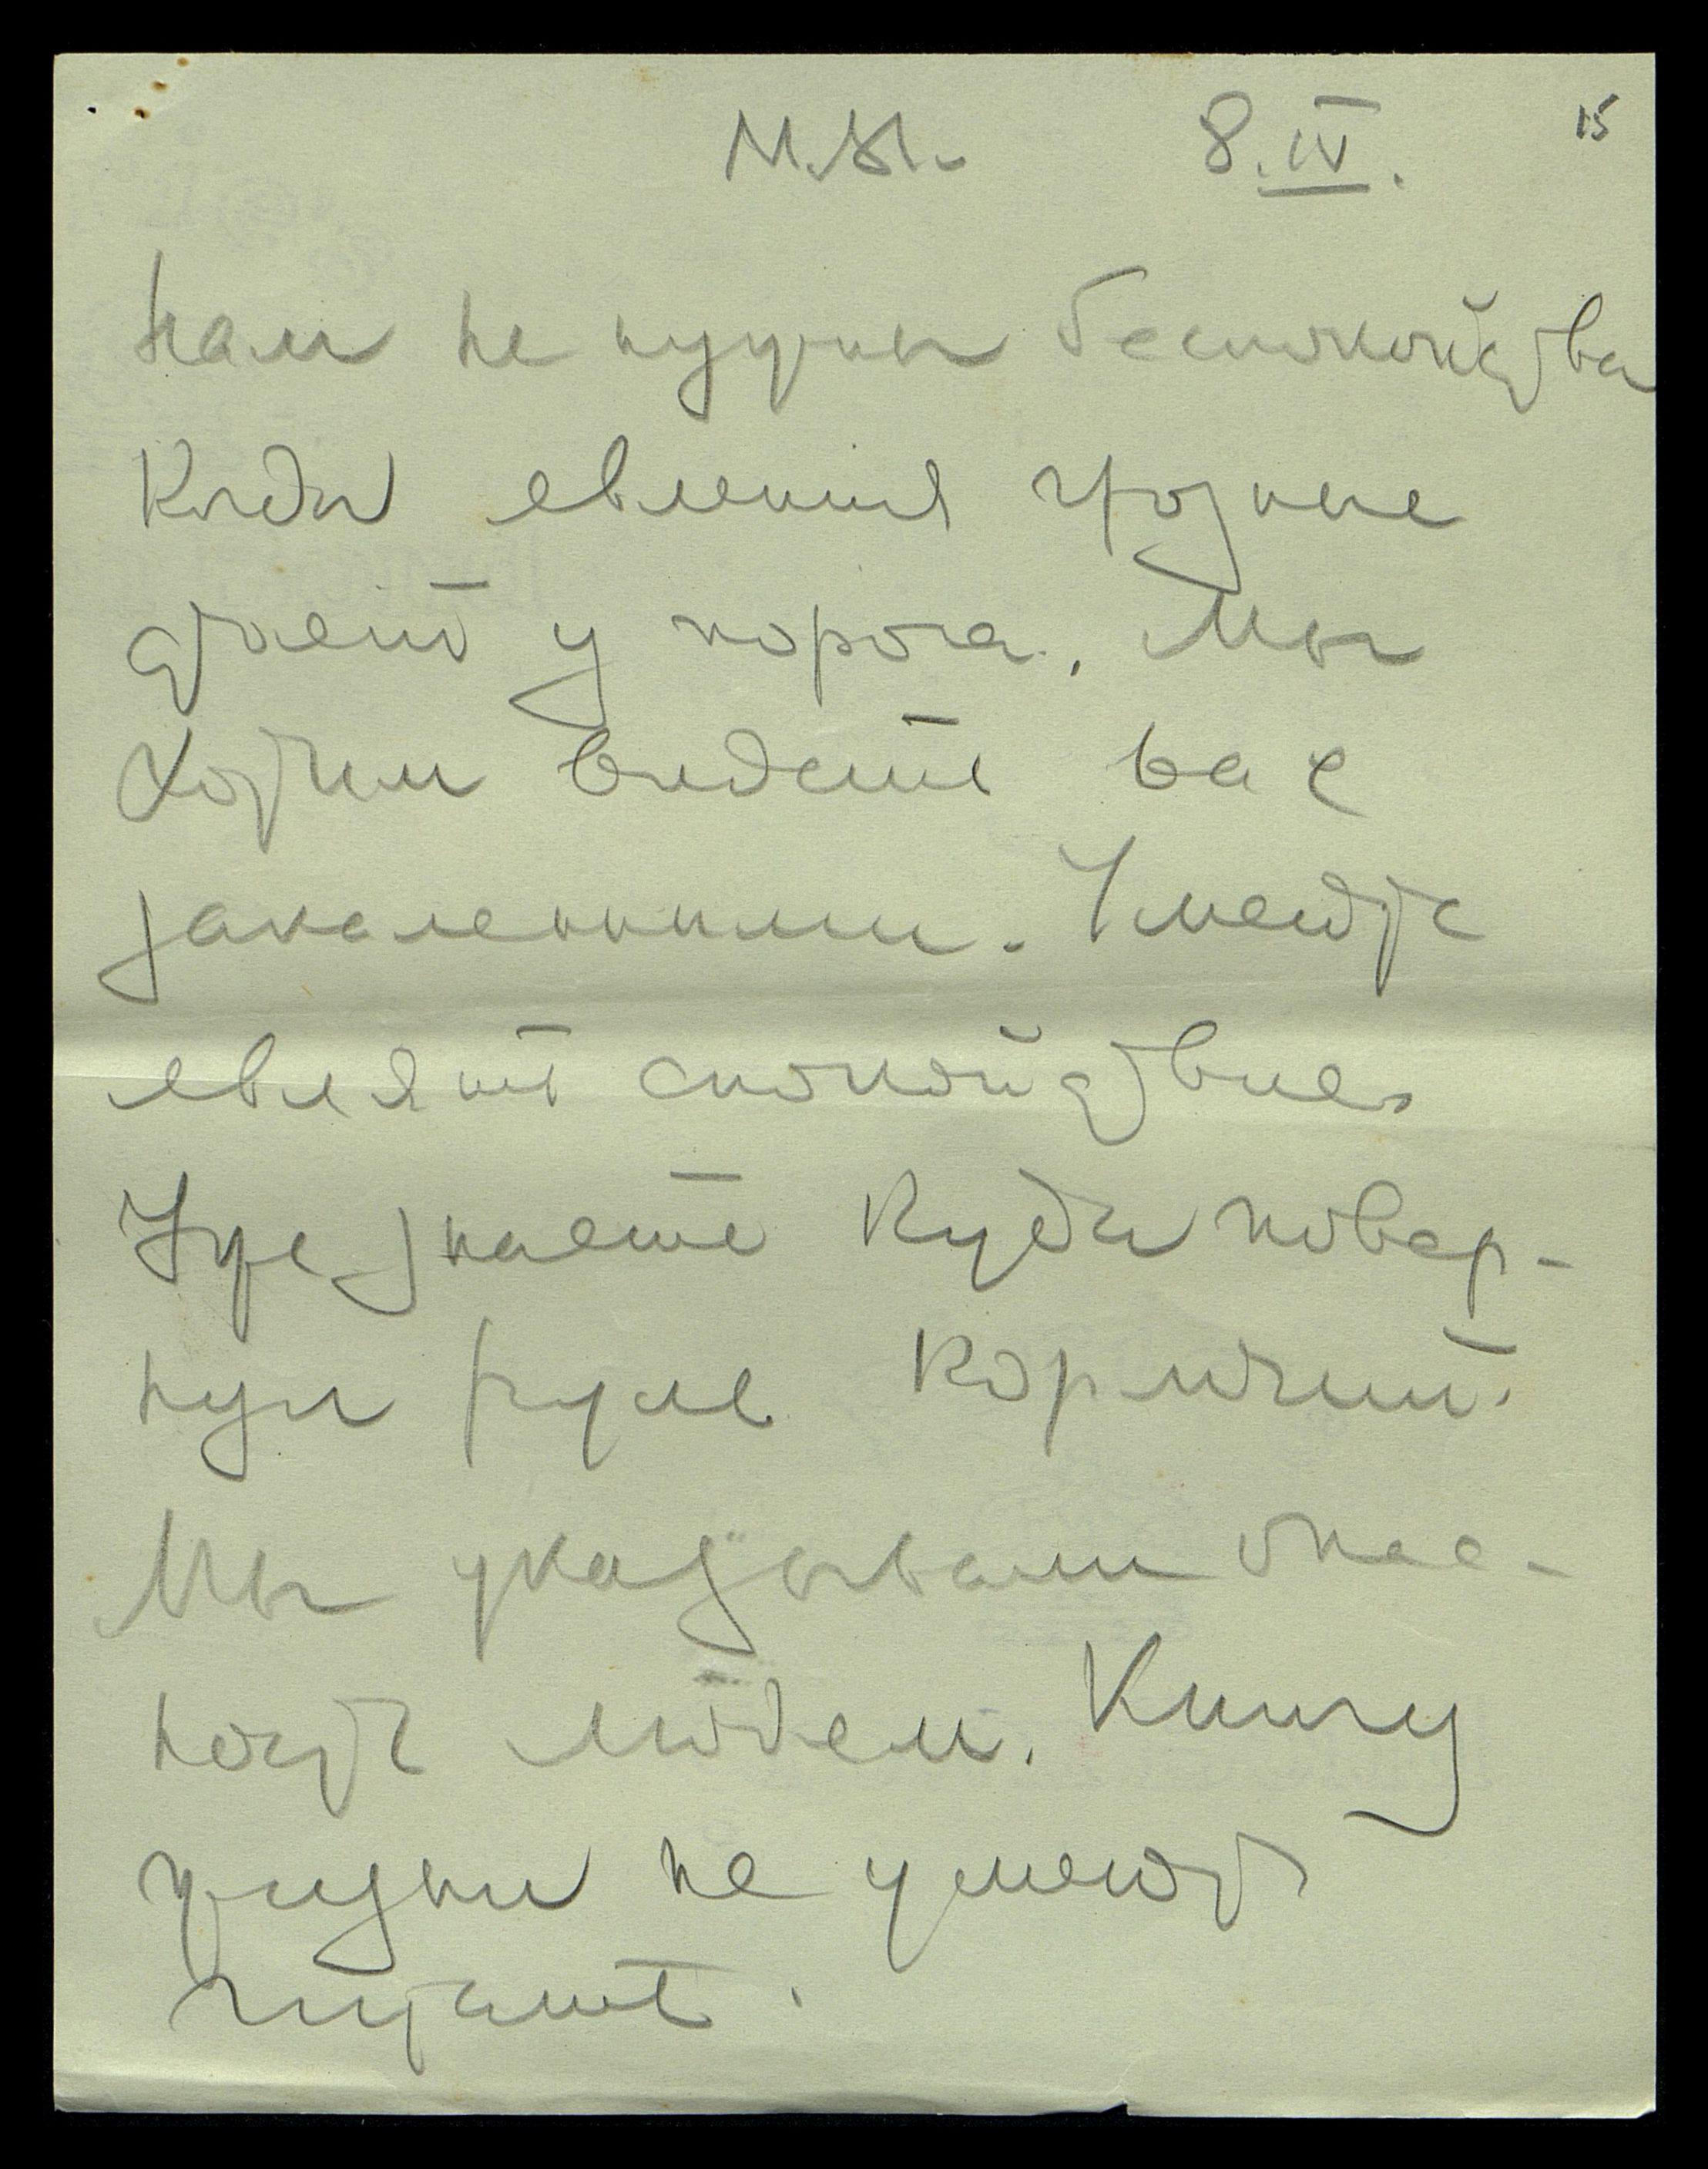 М.М. 8.IV. 15
Нам не нужны беспокойства
Когда явления грозные
стоят у порога. Мы
Хотим видеть вас
закаленными. Умейте
являть спокойствие.
Уже знаете Куда повер-
нул руль Кормчий.
Мы указывали опас-
ность людям. Книгу
жизни не умеют
читать.